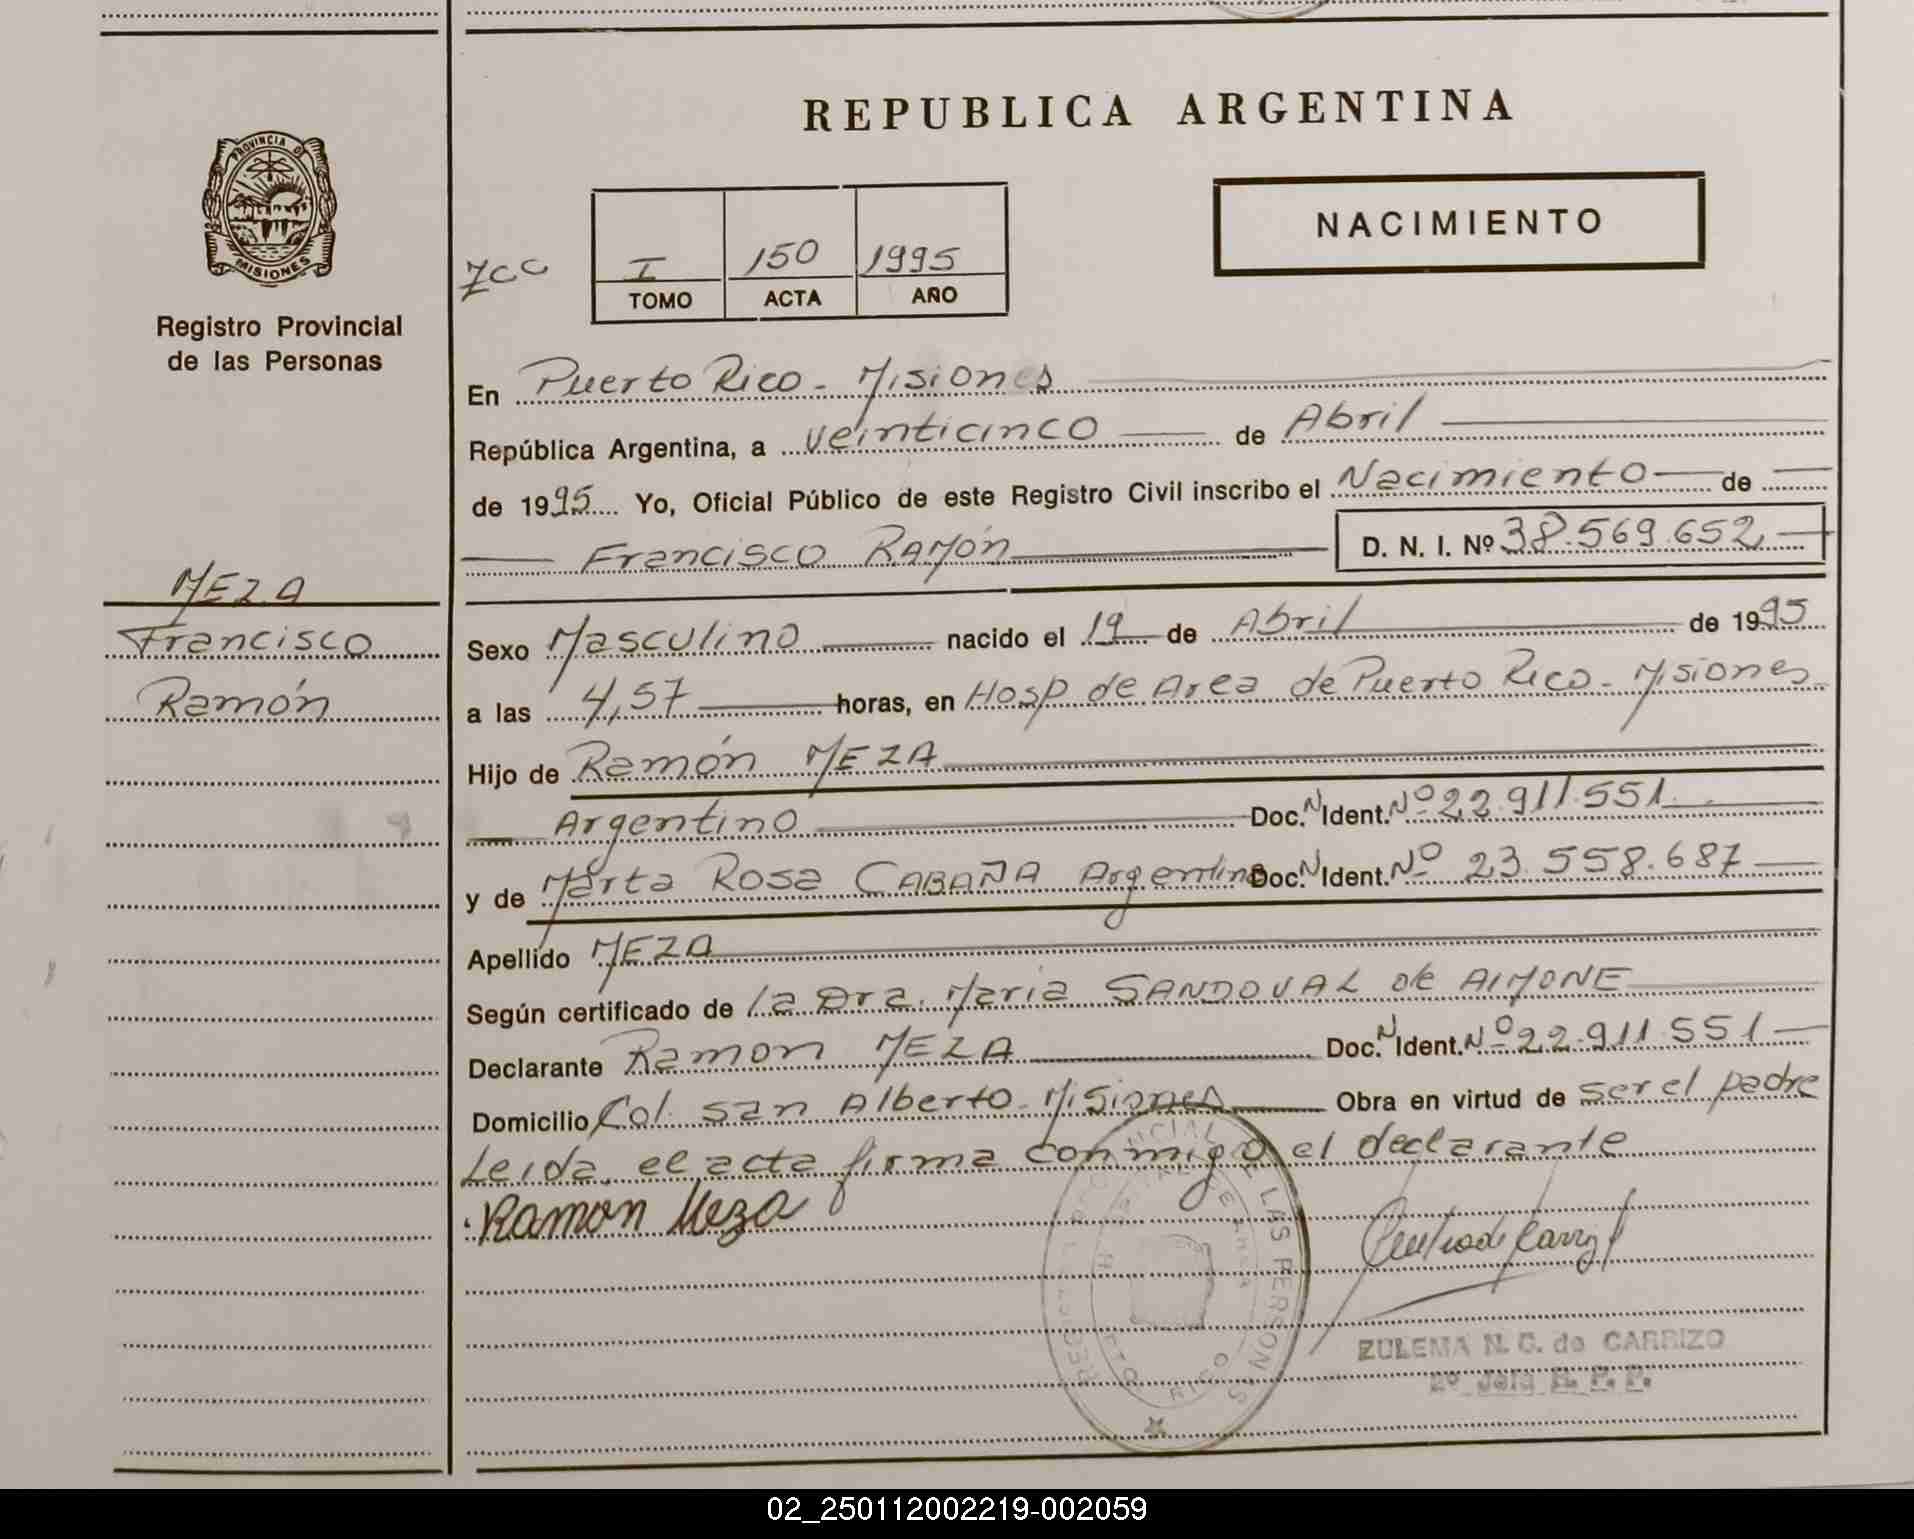 REPUBLICA ARGENTINA
NACIMIENTO
PROVINCIA DE
MISIONES
Registro Provincial
de las Personas
I 150 1995
TOMO ACTA AÑO
En Puerto Rico - Misiones
República Argentina, a veinticinco de Abril
de 1995 Yo, Oficial Público de este Registro Civil inscribo el Nacimiento de
Francisco Ramón D. N. I. Nº 38.569.652
MEZA
Francisco
Ramón
Sexo Masculino nacido el 19 de Abril de 1995
a las 4,57 horas, en Hosp de Area de Puerto Rico - Misiones
Hijo de Ramón MEZA
Argentino Doc. N Ident. Nº 22.911.551
y de Marta Rosa CABAÑA Argentina Doc. N Ident. Nº 23.558.687
Apellido MEZA
Según certificado de la Dra. Maria SANDOVAL de AIMONE
Declarante Ramon MEZA Doc. N Ident. Nº 22.911.551
Domicilio Col. San Alberto - Misiones Obra en virtud de ser el padre
Leida el acta firma conmigo el declarante
Ramon Meza
LAS PERSONAS
RICO
ZULEMA N. C. de CARRIZO
2º Jefe R. P. P.
02_250112002219-002059